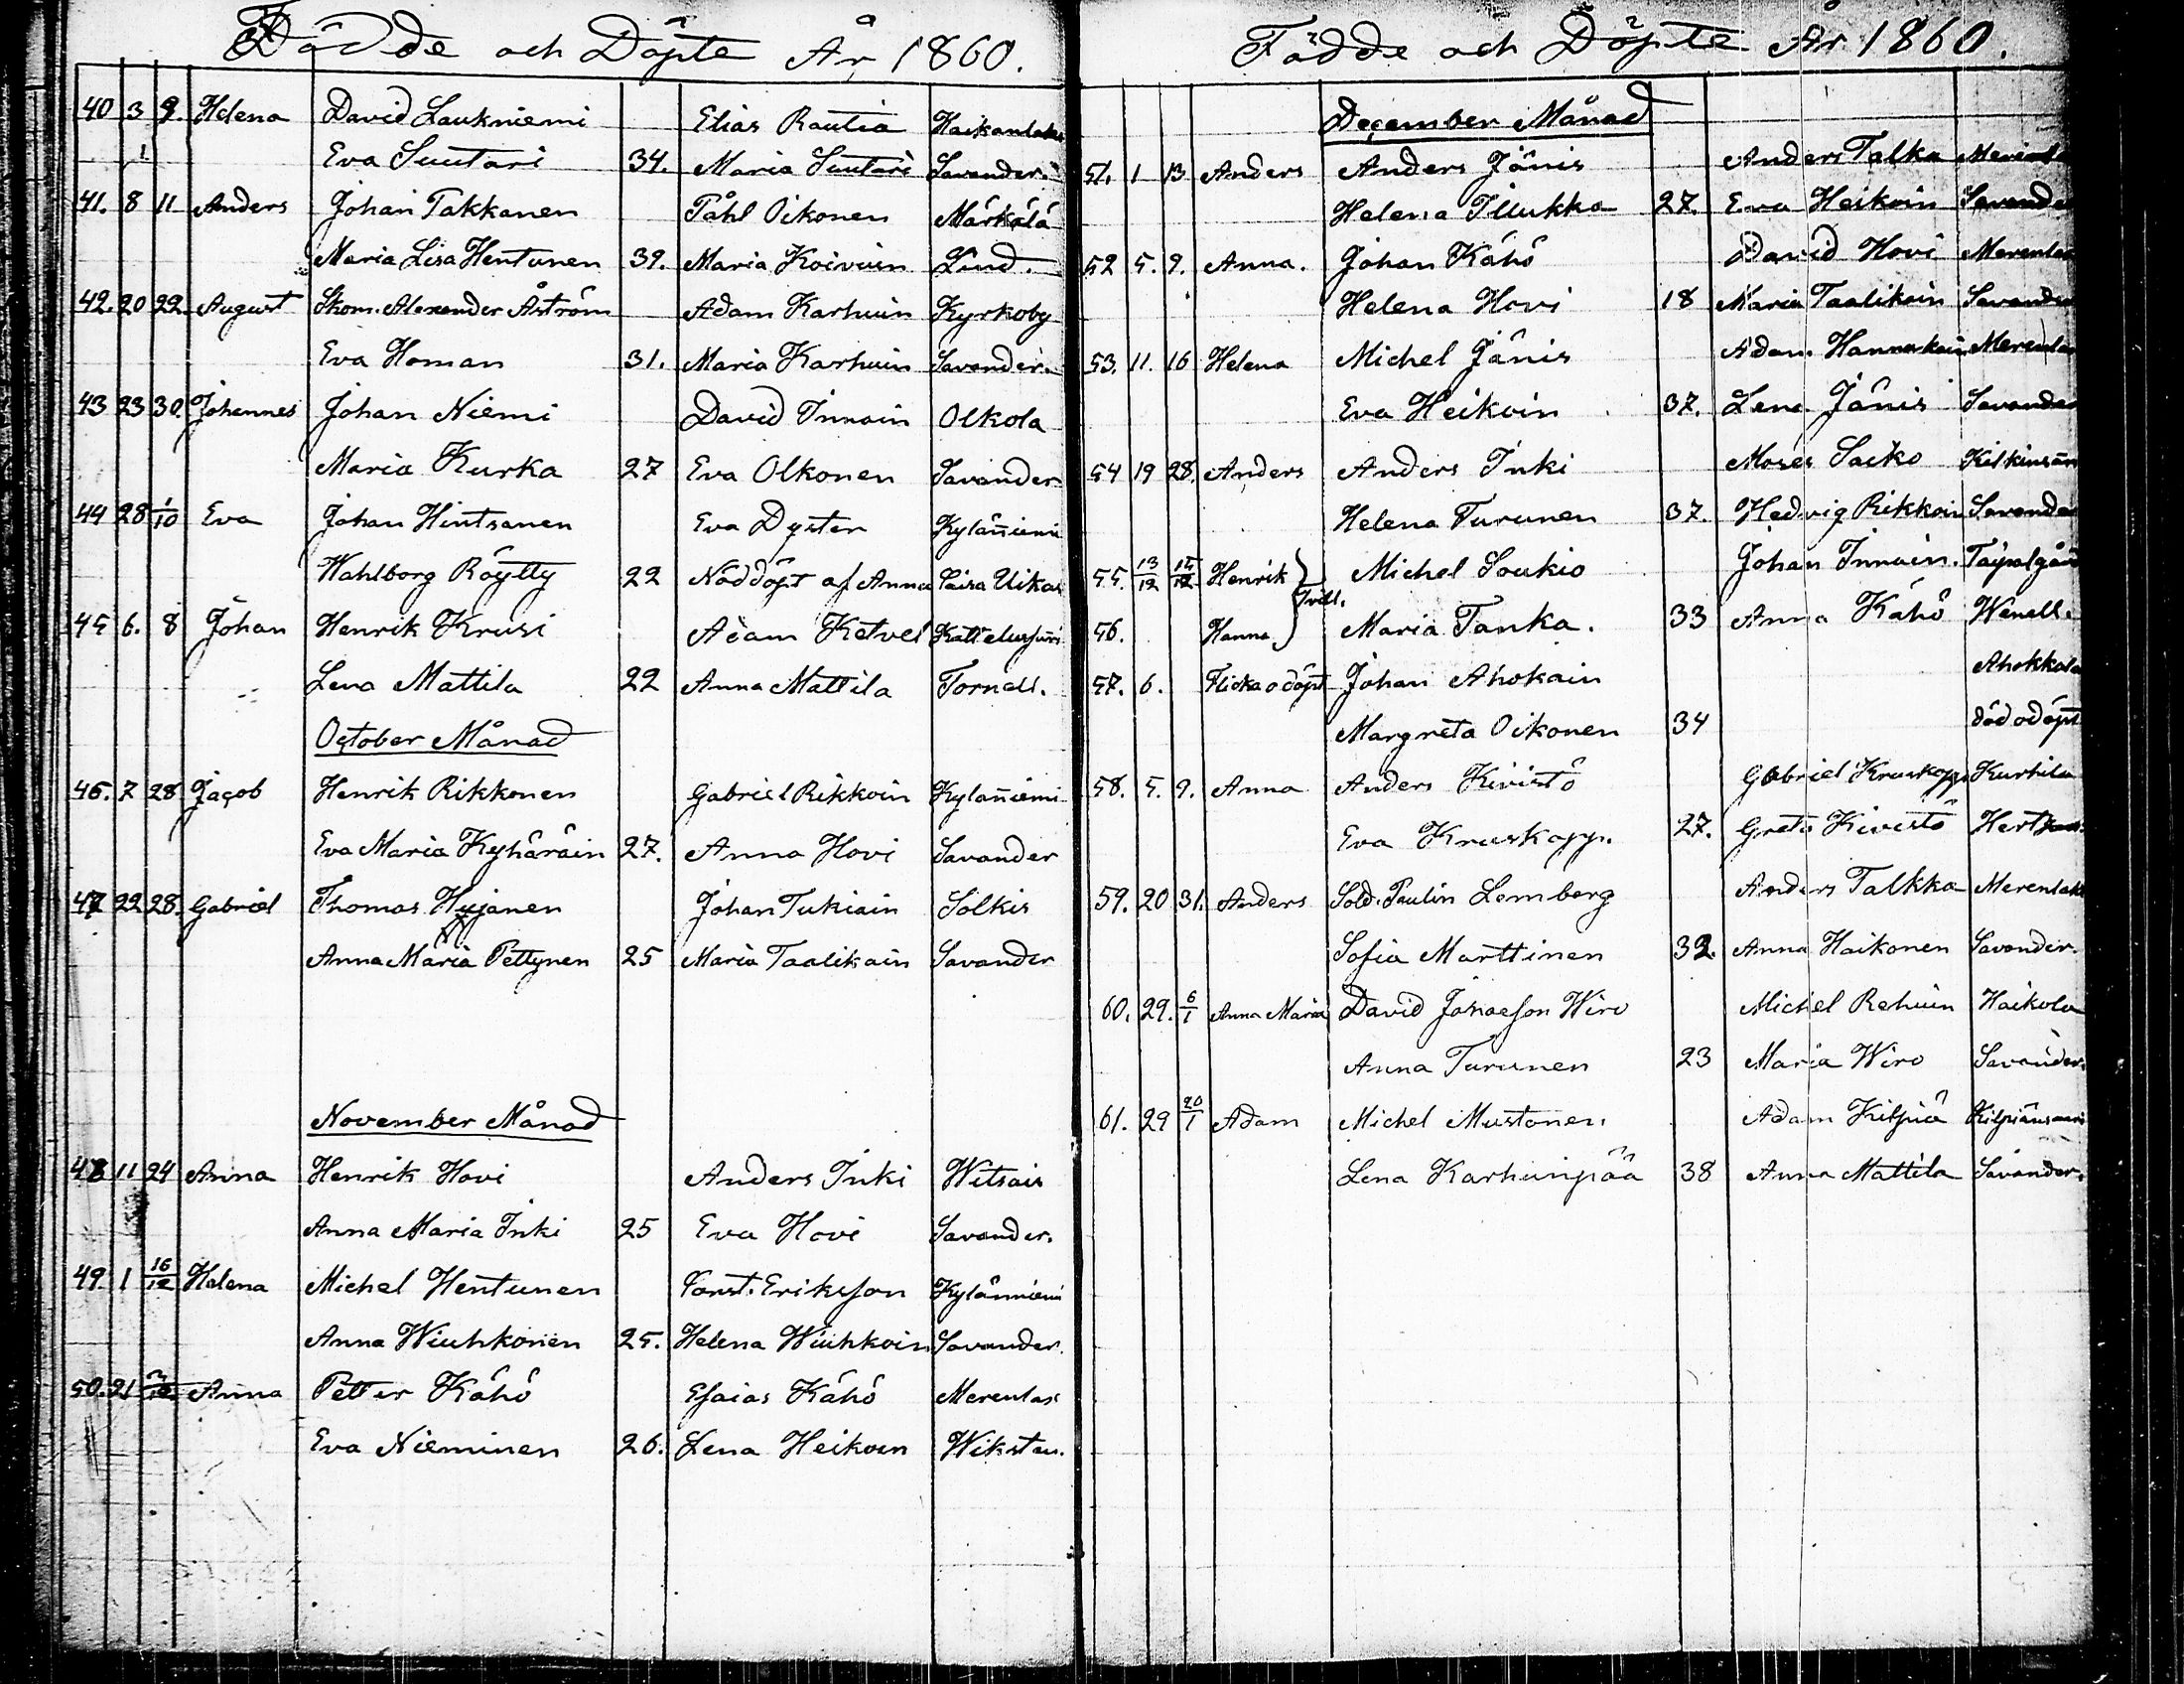 Födde och Döpte År 1860.
40 3 9. Helena David Laukniemi Elias Rautia Haikanlaks
1 Eva Suutari 34. Maria Suutari Savander.
41. 8 11 Anders Johan Takkanen Påhl Oikonen Märkälä
Maria Lisa Hentunen 39. Maria Koivuin Lind.
42. 20 22. August Skom. Alexander Åström Adam Karhuin Kyrkoby
Eva Homan 31. Maria Karhuin Savander.
43 23 30. Johannes Johan Niemi David Innain Olkola
Maria Kurka 27 Eva Olkonen Savander
44 28 1/10 Eva Johan Hintsanen Eva Dyster Kyläniemi
Wahlborg Röytty 22 Nöddöpt af Anna Caisa Uikas
45 6. 8 Johan Henrik Krusi Adam Ketvel Kattelussaari
Lena Mattila 22 Anna Mattila Tornell.
October Månad
46. 7 28 Jacob Henrik Rikkonen Gabriel Rikkoin Kyläniemi
Eva Maria Kyhäräin 27. Anna Hovi Savander
47 22 28. Gabriel Thomas Hyjanen Johan Tukiain Solkis
Anna Maria Pettynen 25 Maria Taalikain Savander
November Månad
48 11 24 Anna Henrik Hovi Anders Inki Witsais
Anna Maria Inki 25 Eva Hovi Savander.
49. 1 16/12 Helena Michel Hentunen Const. Eriksson Kylänniemi
Anna Wiuhkonen 25. Helena Wiuhkoin Savander.
50. 21 2/12 Anna Petter Kähö Esaias Kähö Merenlax
Eva Nieminen 26. Lena Heikoin Wiksten.
Födde och Döpte År 1860.
December Månad
51. 1 13 Anders Anders Jänis Anders Talka Merenla
Helena Illukka 27. Eva Heikoin Savande
52 5. 9. Anna. Johan Kähö David Hovi Merenlax
Helena Hovi 18 Maria Taalikain Savander
53. 11. 16 Helena Michel Jänis Adam Hannukain Merenlax
Eva Heikoin 37. Lena Jänis Savander
54 19 28. Anders Anders Inki Moses Saiko Kilkinsän
Helena Turunen 37. Hedvig Rikkoin Savander
55. 13/12 15/12 Henrik Michel Soukio Johan Innain. Taipalgård
Tvill.
56. Hanna Maria Tanka. 33 Anna Kähö Wenell.
57. 6. Flicka odöpt Johan Ahokain Ahokkala
Margreta Oikonen 34 död odöpt
58. 5. 9. Anna Anders Kivistö Gabriel Kruskopp Kurhila
Eva Kruskopp. 27. Greta Kivistö
59. 20 31. Anders Sold. Paulin Lemberg Anders Talkka Merenlaks
Sofia Marttinen 32. Anna Haikonen Savander.
60. 29. 6/1 Anna Maria David Jonaesson Wiro Michel Rehuin Haikola
Anna Turunen 23 Maria Wiro Savander.
61. 29 20/1 Adam Michel Mustonen. Adam Kilpiä Kilpiänsaari
Lena Karhunpää 38 Anna Mattila Savander.